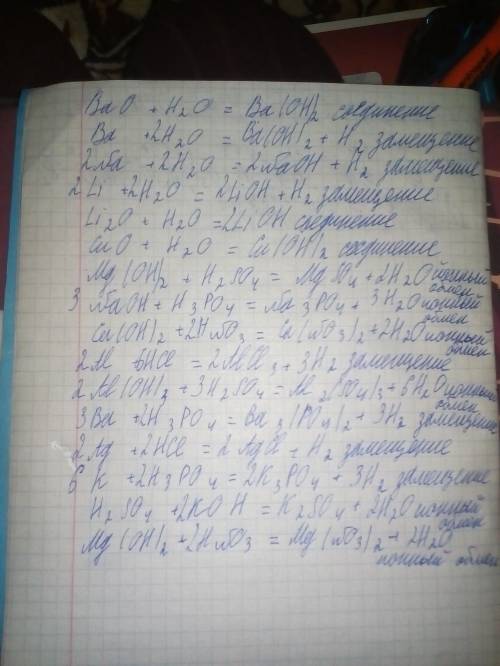 BaO + H2O = Ba(OH)2 соединение
Ba + 2H2O = Ba(OH)2 + H2 замещение
2Na + 2H2O = 2NaOH + H2 замещение
2Li + 2H2O = 2LiOH + H2 замещение
Li2O + H2O = 2LiOH соединение
CuO + H2O = Cu(OH)2 соединение
Mg(OH)2 + H2SO4 = MgSO4 + 2H2O ионный обмен
3NaOH + H3PO4 = Na3PO4 + 3H2O ионный обмен
Ca(OH)2 + 2HNO3 = Ca(NO3)2 + 2H2O ионный обмен
2Al + 6HCl = 2AlCl3 + 3H2 замещение
2Al(OH)2 + 3H2SO4 = Al2(SO4)3 + 6H2O ионный обмен
3Ba + 2H3PO4 = Ba3(PO4)2 + 3H2 замещение
2Ag + 2HCl = 2AgCl + H2 замещение
6K + 2H3PO4 = 2K3PO4 + 3H2 замещение
H2SO4 + 2KOH = K2SO4 + 2H2O ионный обмен
Mg(OH)2 + 2HNO3 = Mg(NO3)2 + 2H2O
ионный обмен